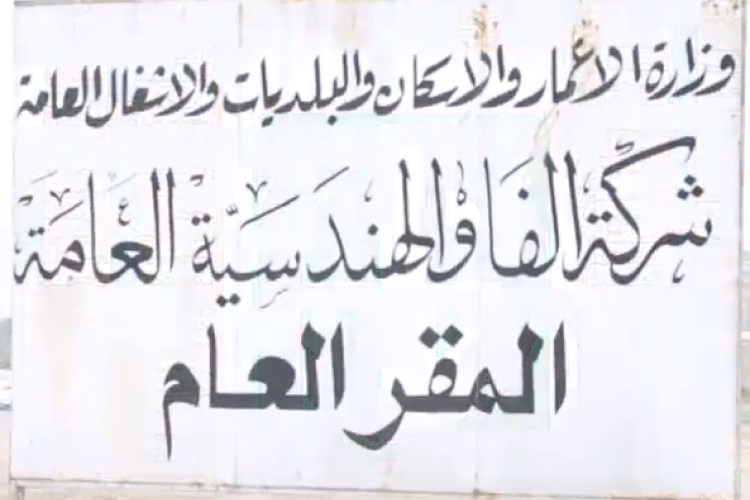 وزارة الاعمار والاسكان والبلديات والاشغال العامة
شركة الفاو الهندسية العامة
المقر العام